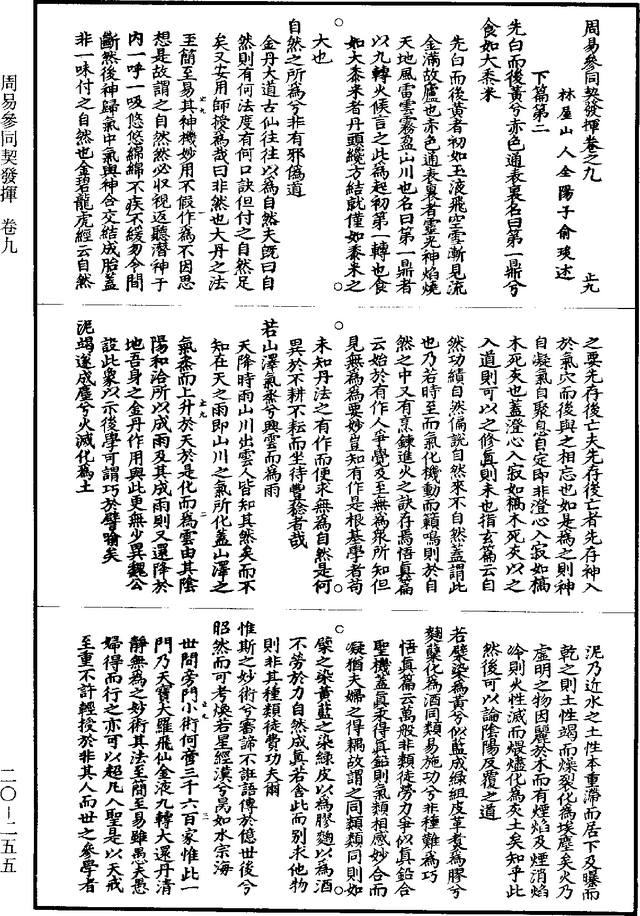 周易參同契發揮卷之九
林屋山人全陽子俞琰述
下篇第二
先白而後黃兮赤色通表裏名曰第一鼎兮
食如大黍米
先白而後黃者初如玉液飛空雪漸見流
金滿故廬也赤色通表裏者靈光神焰燒
天地風雷雲霧盈山川也名曰第一鼎者
以九轉火候言之此為起初第一轉也食
如大黍米者丹頭纔方結就僅如黍米之
大也
自然之所為兮非有邪僞道
金丹大道古仙往往以為自然夫旣曰自
然則有何法度有何口訣但付之自然足
矣又安用師授為哉曰非然也大丹之法
至簡至易其神機妙用不假作為不因思
想是故謂之自然然必收視返聽潛神于
內一呼一吸悠悠綿綿不疾不緩勿令間
斷然後神歸氣中氣與神合交結成胎蓋
非一味付之自然也金碧龍虎經云自然
之要先存後亡夫先存後亡者先存神入
於氣穴而後與之相忘也如是為之則神
自凝氣自聚息自定即非澄心入寂如槁
木死灰也蓋澄心入寂如槁木死灰以之
入道則可以之修眞則未也指玄篇云自
然功績自然偏說自然來不自然蓋謂此
也乃若時至而氣化機動而籟鳴則於自
然之中又有烹鍊進火之訣存焉悟眞篇
云始於有作人爭覺及至無為衆所知但
見無為為要妙豈知有作是根基學者苟
未知丹法之有作而便求無為自然是何
異於不耕不耘而坐待豐稔者哉
若山澤氣烝兮興雲而為雨
天降時雨山川出雲人皆知其然矣而不
知在天之雨即山川之氣所化蓋山澤之
氣烝而上升於天於是化而為雲由其陰
陽和洽所以成雨及其成雨則又還降於
地吾身之金丹作用與此更無少異魏公
設此象以示後學可謂巧於譬喻矣
泥竭遂成塵兮火滅化為土
泥乃近水之土性本重滯而居下及曝而
乾之則土性竭而燥裂化為埃塵矣火乃
虛明之物因麗於木而有煙焰及煙消焰
冷則火性滅而煨燼化為灰土矣知乎此
然後可以論陰陽反覆之道
若檗染為黃兮似藍成綠組皮革煮為膠兮
麴糵化為酒同類易施功兮非種難為巧
悟眞篇云萬般非類徒勞力爭似眞鉛合
聖機蓋眞汞得眞鉛則氣類相感妙合而
凝猶夫婦之得耦故謂之同類類同則如
檗之染黃藍之染綠皮以為膠麴以為酒
不勞於力自然成眞若舍此而別求他物
則非其種類徒費功夫爾
惟斯之妙術兮審諦不誑語傳於億世後兮
昭然而可考煥若星經漢兮昺如水宗海
世間旁門小術何啻三千六百家惟此一
門乃天寶大羅飛仙金液九轉大還丹清
靜無為之妙術其法至簡至易雖愚夫愚
婦得而行之亦可以超凡入聖是以天戒
至重不許輕授於非其人而世之參學者
周易參同契發揮 卷九
二〇-二五五